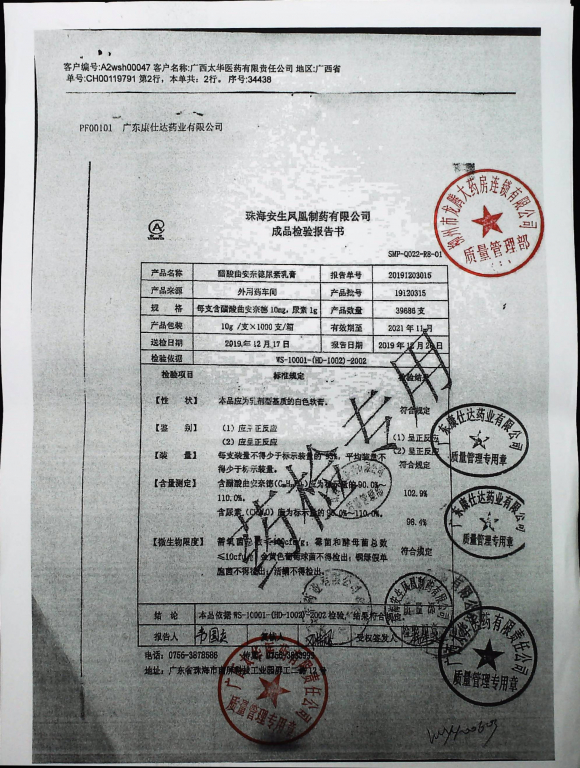 客户编号:A2wsh00047 客户名称:广西太华医药有限责任公司 地区:广西省
单号:CH00119791 第2行，本单共：2行。序号:34438
PF00101 广东康仕达药业有限公司
珠海安生凤凰制药有限公司
成品检验报告书
SMP-Q022-R8-01
产品名称 醋酸曲安奈德尿素乳膏 报告单号 20191203015
产品来源 外用药车间 产品批号 19120315
规 格 每支含醋酸曲安奈德 10mg，尿素 1g 产品数量 39686 支
产品包装 10g /支×1000 支/箱 有效期至 2021 年 11 月
送检日期 2019 年 12 月 17 日 报告日期 2019 年 12 月
检验依据 WS-10001-(HD-1002)-2002
检验项目 标准规定 检验结
【性 状】 本品应为乳剂型基质的白色软膏。 符合规定
【鉴 别】 (1) 应呈正反应 (1) 呈正反应
(2) 应呈正反应 (2) 呈正反应
【装 量】 每支装量不得少于标示装量的 93%，平均装量不
得少于标示装量。 符合规定
【含量测定】 含醋酸曲安奈德 应为标示量的 90.0%～
110.0%。 102.9%
含尿素 应为标示量的 90.0%～110.0%。 98.4%
【微生物限度】 需氧菌总数≤100cfu/g；霉菌和酵母菌总数
≤10cfu/g；金黄色葡萄球菌不得检出；铜绿假单 符合规定
胞菌不得检出；活螨不得检出。
结 论 本品依据 WS-10001-(HD-1002)-2002 检验，结果符合
报告人 韦国 复核人 受权签发人
电话：0756-3878586 传真：0756-
地址：广东省珠海市 科技工业园屏工二路
药检专用
龙腾大药房连锁有限公司
质量管理部
广东康仕达药业有限公司
质量管理专用章
广东康仕达药业有限公司
质量管理专用章
珠海安生凤凰制药有限公司
医药有限责任公司
质量管理专用章
医药有限责任公司
质量管理专用章